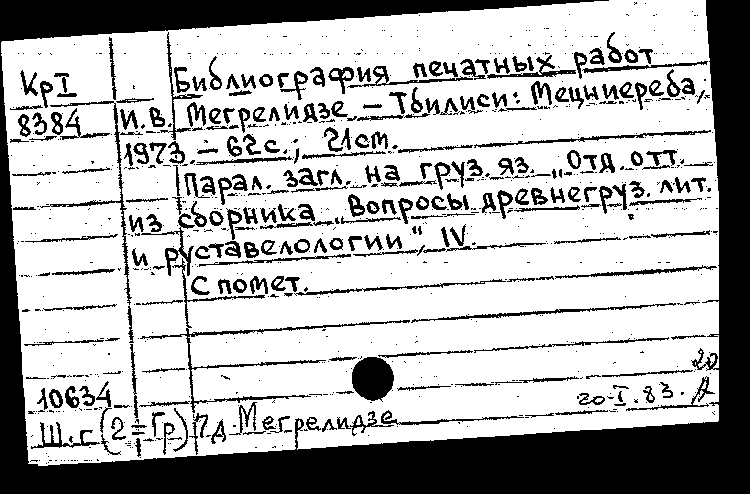 КрI Библиография печатных работ
8384 И.В. Мегрелидзе – Тбилиси: Мецниереба,
1973. – 62 с.; 21 см.
Парал. загл. на груз. яз. „Отд. отт.
из сборника „Вопросы древнегруз. лит.
и руставелологии“, IV.
С помет.
20
10634 20.I.83.
Ш.г (2=Гр) 7д Мегрелидзе